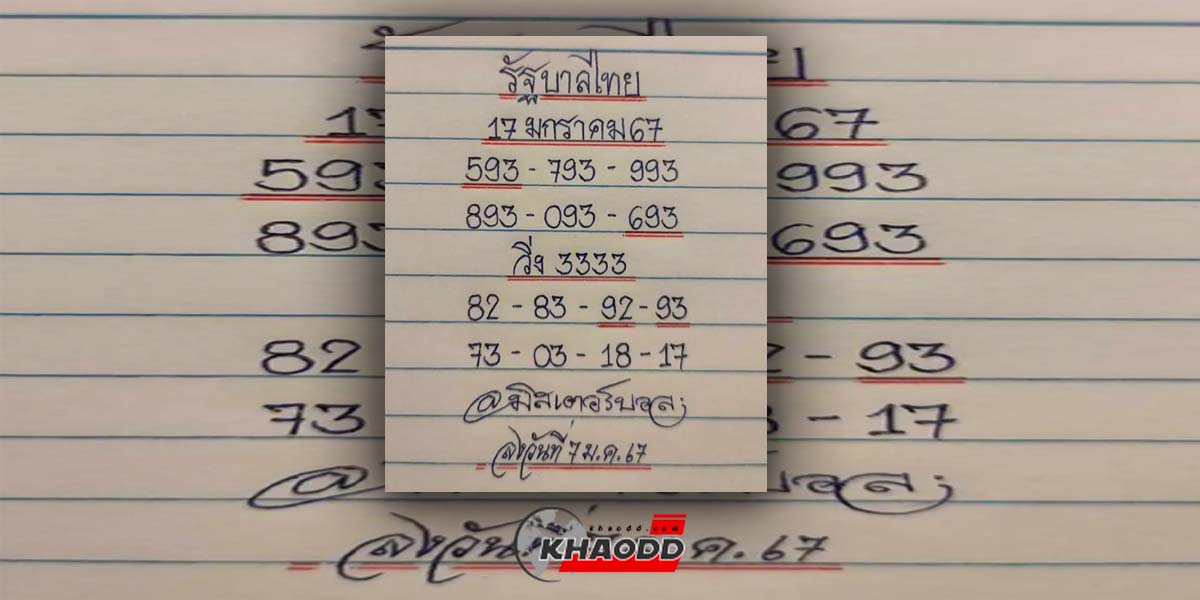 รัฐบาลไทย
17 มกราคม 67
593 - 793 - 993
893 - 093 - 693
วิ่ง 3333
82 - 83 - 92 - 93
73 - 03 - 18 - 17
@มิสเตอร์บอล;
ลงวันที่ 7 ม.ค. 67
khaodd.com
KHAODD